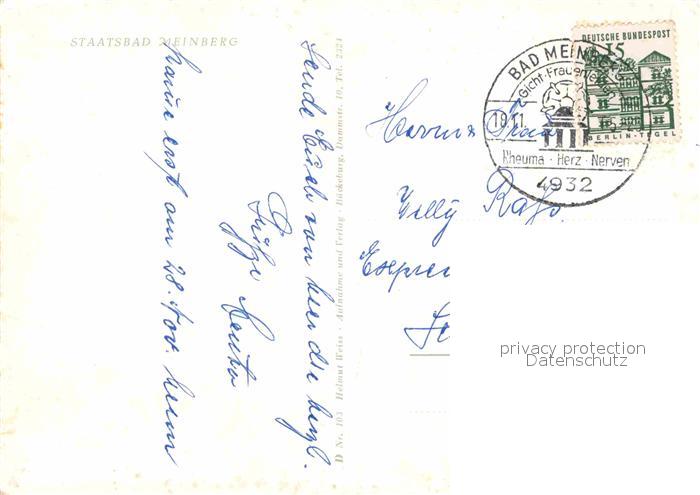 STAATSBAD MEINBERG
Sende Euch von hier die herzl.
Grüße
hause erst am 28. Nov. komm
D Nr. 103 · Helmut Weiss · Aufnahme und Verlag · Bückeburg, Dammstr. 10, Tel. 2324
DEUTSCHE BUNDESPOST
15
BERLIN-TEGEL
BAD MEINBERG
Gicht · Frauenleiden
Rheuma · Herz · Nerven
4932
Herrn u. Frau
Willy
privacy protection
Datenschutz